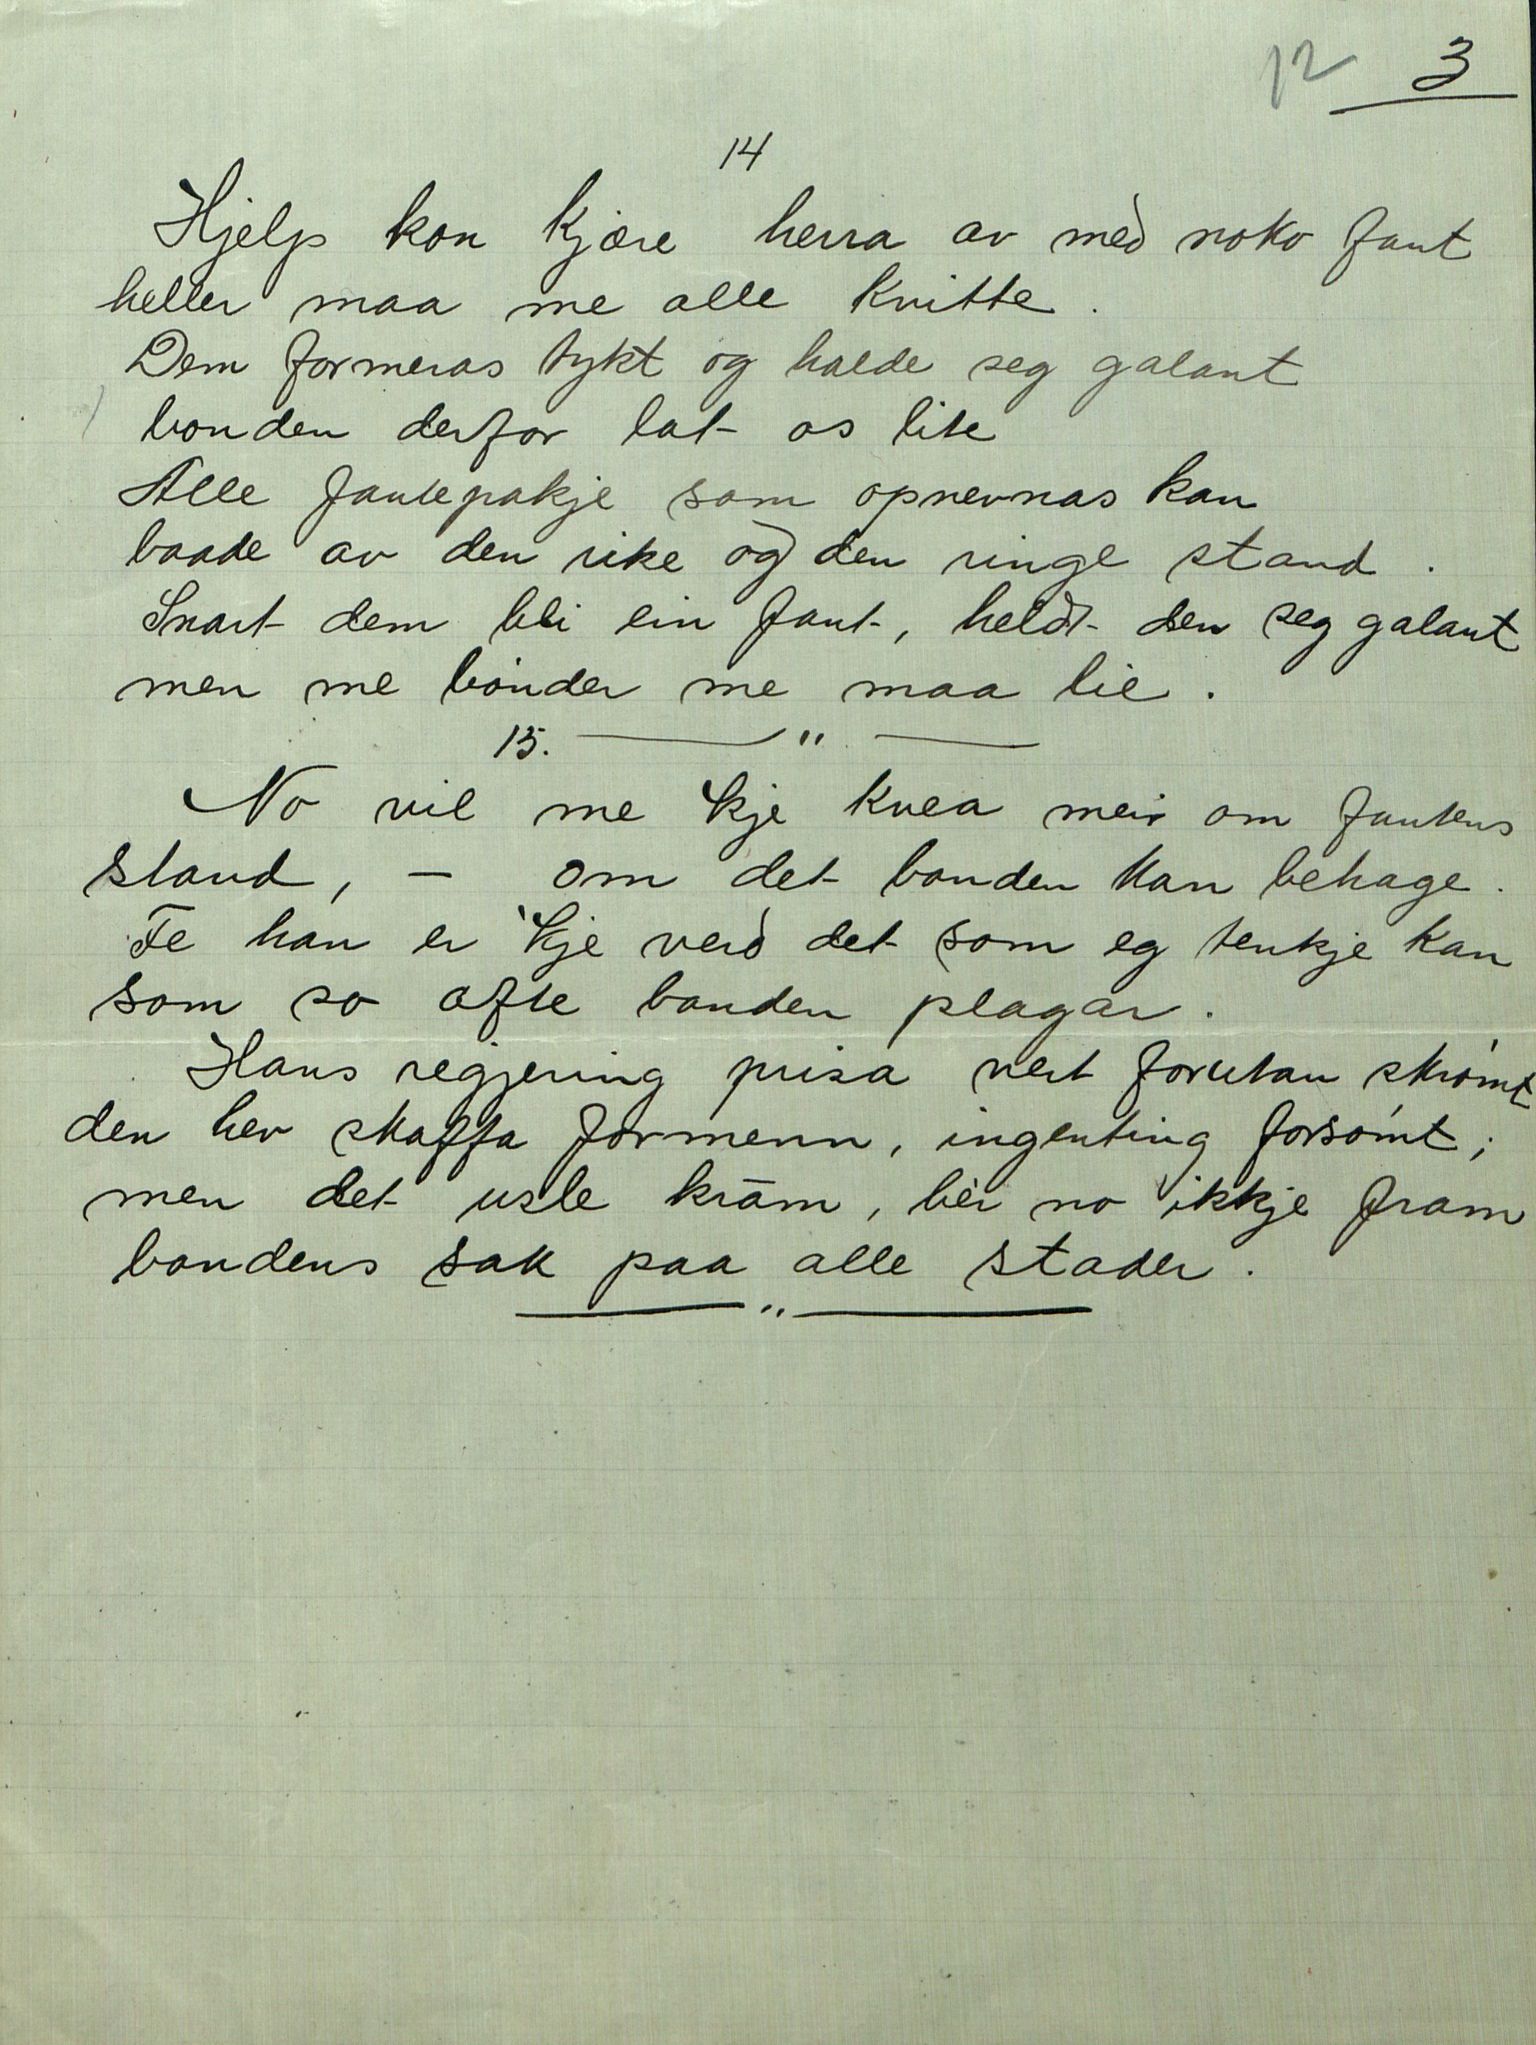 12 3
14
Hjelp kon kjære herra av med noko fant
heller maa me alle kvitte.
Dem formeras tykt og halde seg galant
bonden derfor lat os lite
Alle fantepakje som opnevnas kan
baade av den rike og den ringe stand.
Snart dem bli ein fant, heldt den seg galant
men me bönder me maa lie.
15. — " —
No vil me 'kje kvea meir om fantens
stand, — om det bonden kan behage.
Te han er 'kje verd det som eg tenkje kan
som so ofte bonden plagar.
Hans regjering prisa vert forutan skrömt
den hev skaffa formenn, ingenting forsömt;
men det usle kram, bèr no ikkje fram
bondens sak paa alle stader.
— " —